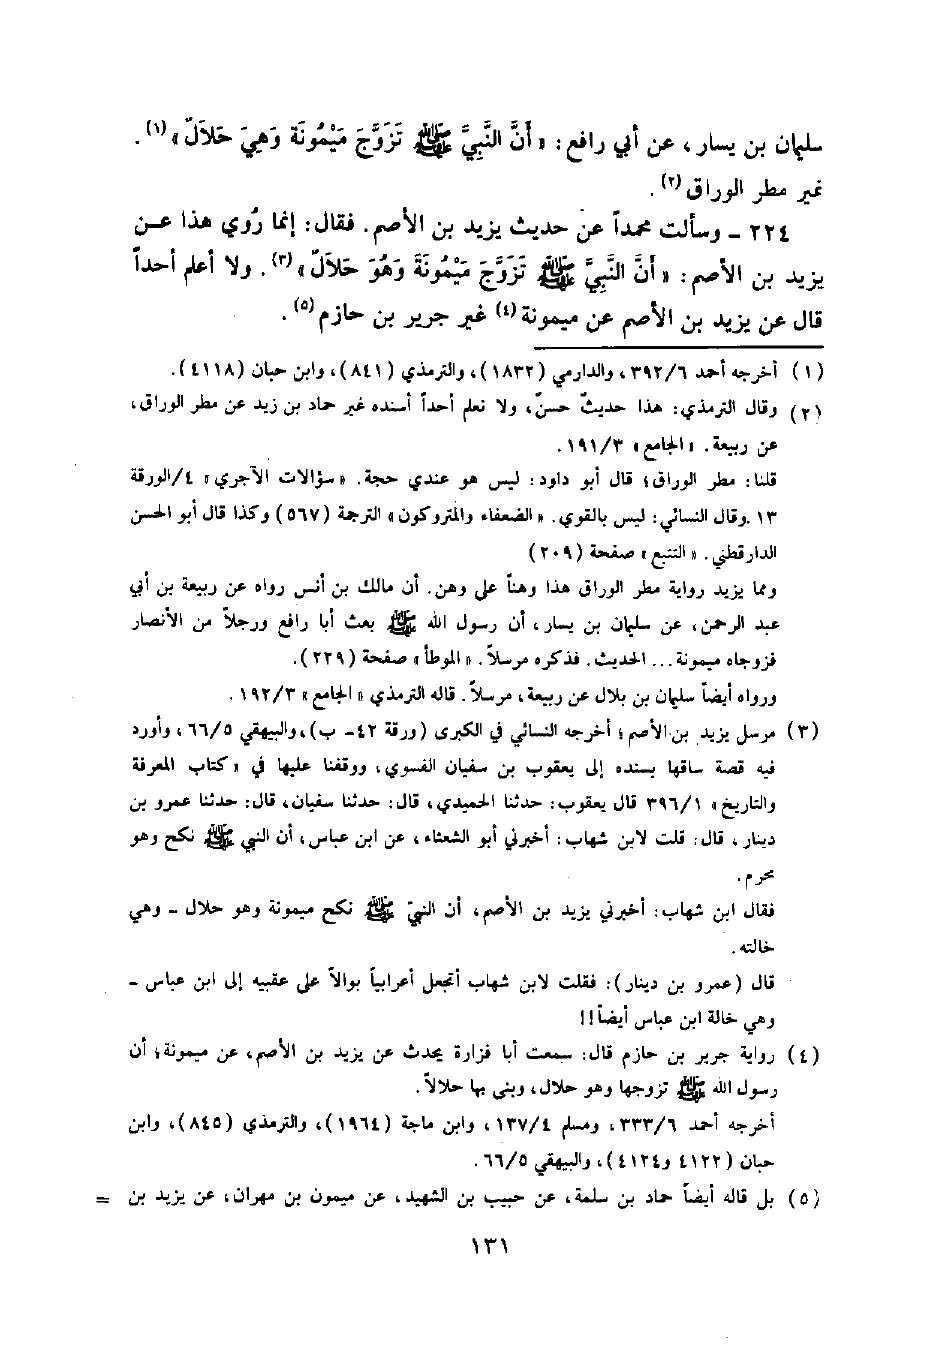 سليمان بن يسار، عن أبي رافع: «أَنَّ النَّبِيَّ ﷺ تَزَوَّجَ مَيْمُونَةَ وَهِيَ حَلاَلٌ»(١).
غير مطر الوراق(٢).
٢٢٤ ـ وسألت محمداً عن حديث يزيد بن الأصم. فقال: إنما رُوي هذا عن
يزيد بن الأصم: «أَنَّ النَّبِيَّ ﷺ تَزَوَّجَ مَيْمُونَةَ وَهُوَ حَلاَلٌ»(٣). ولا أعلم أحداً
قال عن يزيد بن الأصم عن ميمونة(٤) غير جرير بن حازم(٥).
(١) أخرجه أحمد ٣٩٢/٦، والدارمي (١٨٣٢)، والترمذي (٨٤١)، وابن حبان (٤١١٨).
(٢) وقال الترمذي: هذا حديثٌ حسنٌ، ولا نعلم أحداً أسنده غير حماد بن زيد عن مطر الوراق،
عن ربيعة. «الجامع» ١٩١/٣.
قلنا: مطر الوراق؛ قال أبو داود: ليس هو عندي حجة. «سؤالات الآجري» ٤/الورقة
١٣. وقال النسائي: ليس بالقوي. «الضعفاء والمتروكون» الترجمة (٥٦٧) وكذا قال أبو الحسن
الدارقطني. «التتبع» صفحة (٢٠٩)
ومما يزيد رواية مطر الوراق هذا وهناً على وهن. أن مالك بن أنس رواه عن ربيعة بن أبي
عبد الرحمن، عن سليمان بن يسار، أن رسول الله ﷺ بعث أبا رافع ورجلاً من الأنصار
فزوجاه ميمونة... الحديث. فذكره مرسلاً. «الموطأ» صفحة (٢٢٩).
ورواه أيضاً سليمان بن بلال عن ربيعة، مرسلاً. قاله الترمذي «الجامع» ١٩٢/٣.
(٣) مرسل يزيد بن الأصم؛ أخرجه النسائي في الكبرى (ورقة ٤٢ـ ب)، والبيهقي ٦٦/٥، وأورد
فيه قصة ساقها بسنده إلى يعقوب بن سفيان الفسوي، ووقفنا عليها في «كتاب المعرفة
والتاريخ» ٣٩٦/١ قال يعقوب: حدثنا الحميدي، قال: حدثنا سفيان، قال: حدثنا عمرو بن
دينار، قال: قلت لابن شهاب: أخبرني أبو الشعثاء، عن ابن عباس، أن النبي ﷺ نكح وهو
محرم.
فقال ابن شهاب: أخبرني يزيد بن الأصم، أن النبيّ ﷺ نكح ميمونة وهو حلال ـ وهي
خالته.
قال (عمرو بن دينار): فقلت لابن شهاب أتجعل أعرابياً بوالاً على عقبيه إلى ابن عباس ـ
وهي خالة ابن عباس أيضاً!!
(٤) رواية جرير بن حازم قال: سمعت أبا فزارة يحدث عن يزيد بن الأصم، عن ميمونة؛ أن
رسول الله ﷺ تزوجها وهو حلال، وبنى بها حلالاً.
أخرجه أحمد ٣٣٣/٦، ومسلم ١٣٧/٤، وابن ماجة (١٩٦٤)، والترمذي (٨٤٥)، وابن
حبان (٤١٢٢ و٤١٢٤)، والبيهقي ٦٦/٥.
(٥) بل قاله أيضاً حماد بن سلمة، عن حبيب بن الشهيد، عن ميمون بن مهران، عن يزيد بن =
١٣١